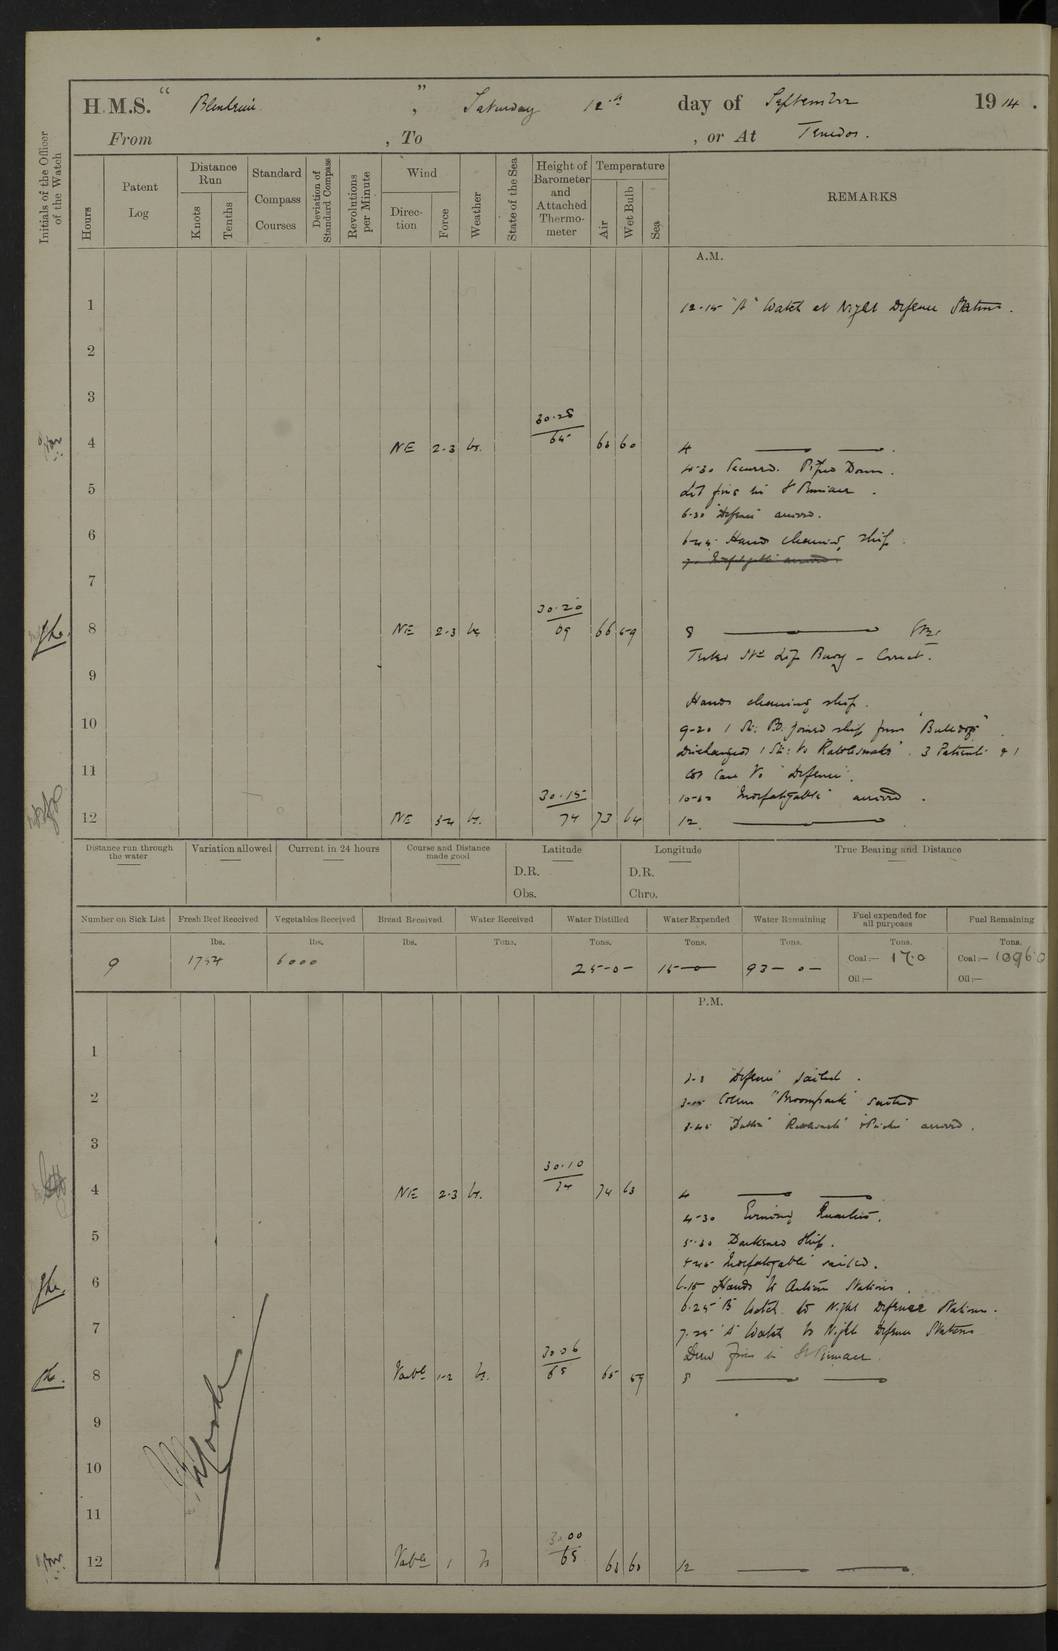 H.M.S. "Blenheim", Saturday 12th day of September 1914.
From , To , or At Tenedos.
Initials of the Officer of the Watch
Hours
Patent Log
Distance Run
Knots
Tenths
Standard Compass Courses
Deviation of Standard Compass
Revolutions per Minute
Wind
Direction
Force
Weather
State of the Sea
Height of Barometer and Attached Thermometer
Temperature
Air
Wet Bulb
Sea
REMARKS
A.M.
1 12-15 "A" Watch at Night Defence Stations.
2
3
30.28
4 NE 2-3 65 60 4
4-30 Secured. Piped Down.
Lit fires in St Pinnace.
5
6-30 "Defence" arrived.
6 6-45 Hands cleaning ship.
7 "Indefatigable" arrived.
7
30.20
8 NE 2-3 69 66 59 8
Tested Nt Life Buoy - Correct.
9
Hands cleaning ship.
10 9-20 1 St: PO. joined ship from "Bulldog"
Discharged 1 St: to "Rattlesnake". 3 Patients & 1
11 Cot Case to "Defence".
30.15
10-30 "Indefatigable" arrived.
12 NE 3-4 74 73 64 12.
Distance run through the water
Variation allowed
Current in 24 hours
Course and Distance made good
Latitude
D.R.
Obs.
Longitude
D.R.
Chro.
True Bearing and Distance
Number on Sick List
Fresh Beef Received
Vegetables Received
Bread Received
Water Received
Water Distilled
Water Expended
Water Remaining
Fuel expended for all purposes
Fuel Remaining
lbs. lbs. lbs. Tons. Tons. Tons. Tons. Tons. Tons.
9 1754 6000 25-0- 15-0 93-0- Coal:— 17.0 Coal:— 1096.0
Oil:— Oil:—
P.M.
1
"Defence" sailed.
2 Collier "Broompark" sailed
"Rattlesnake" arrived.
3
30.10
4 NE 2-3 74 74 63 4
4-30 Evening Quarters.
5 5-30 Darkened Ship.
"Indefatigable" sailed.
6 6-15 Hands to Action Stations.
6-25 "B" Watch to Night Defence Stations.
7 7-25 "A" Watch to Night Defence Stations
30.06
Drew Fires in St Pinnace.
8 Vable 1-2 68 65 59 8
9
10
11
30.00
12 Vable 1 65 63 60 12